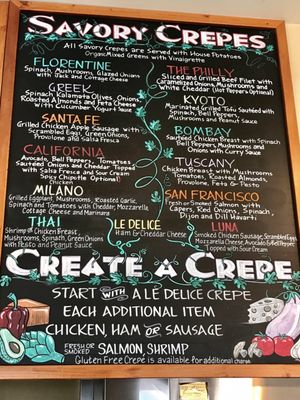 SAVORY CREPES
All Savory Crepes are Served with House Potatoes
Organic Mixed Greens with Vinaigrette
FLORENTINE
Spinach, Mushrooms, Glazed Onions
with Jack and Cottage Cheese
GREEK
Spinach, Kalamata Olives, Onions,
Roasted Almonds and Feta Cheese
with Cucumber Yogurt Sauce
SANTA FE
Grilled Chicken Apple Sausage with
Scrambled Egg, Green Onions,
Provolone and Salsa Fresca
CALIFORNIA
Avocado, Bell Peppers, Tomatoes,
Sautéed Onions and Cheddar Topped
with Salsa Fresca and Sour Cream
Spicy Chipotle Optional!
Chicken
MILANO
Grilled Eggplant, Mushrooms, Roasted Garlic,
Spinach and Tomatoes with Cheddar, Mozzarella,
Cottage Cheese and Marinara
THAI
Shrimp or Chicken Breast,
Mushrooms, Spinach, Green Onions
with Pesto and Peanut Sauce
THE PHILLY
Sliced and Grilled Beef Filet with
Caramelized Onions, Mushrooms and
White Cheddar (Hot Peppers Optional)
KYOTO
Marinated Grilled Tofu Sautéed with
Spinach, Bell Peppers,
Mushrooms and Peanut Sauce
BOMBAY
Sautéed Chicken Breast with Spinach,
Bell Peppers, Mushrooms and
Onions with Curry Sauce
TUSCANY
Chicken Breast, Spinach, Mushrooms,
Tomatoes, Roasted Almonds,
Provolone, Feta & Pesto
SAN FRANCISCO
Fresh or Smoked Salmon with
Capers, Red Onions, Spinach,
Dijon and Dill Havarti
LE DELICE
Ham & Cheddar Cheese
LUNA
Smoked Chicken Sausage, Scrambled Eggs
Mozzarella Cheese, Avocado & Bell Peppers
Topped with Sour Cream
CREATE A CREPE
START WITH A LE DELICE CREPE
EACH ADDITIONAL ITEM
CHICKEN, HAM OR SAUSAGE
FRESH OR SMOKED SALMON, SHRIMP
Gluten Free Crepe is available for additional charge